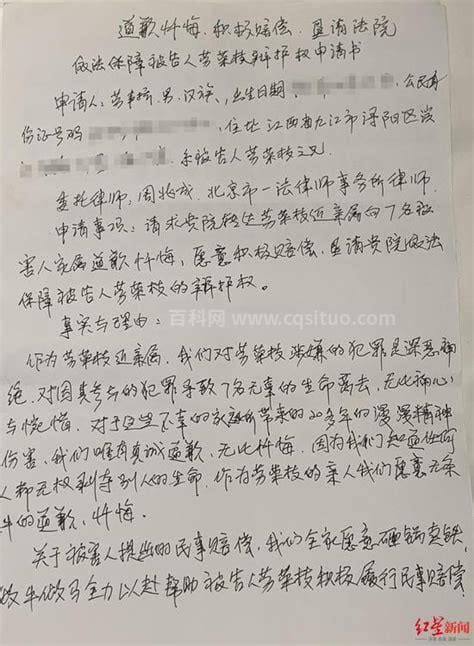 道歉忏悔、积极赔偿、恳请法院
依法保障被告人劳荣枝辩护权申请书
申请人：劳 男、汉族、出生日期 公民身
份证号码 住址 江西省九江市浔阳区
系被告人劳荣枝之兄.
委托律师，周兆成、北京市一法律师事务所律师.
申请事项：请求贵院转达劳荣枝近亲属向7名被
害人家属道歉忏悔，愿意积极赔偿，恳请贵院依法
保障被告人劳荣枝的辩护权。
事实与理由：
百科网 www.cqsituo.com
作为劳荣枝近亲属，我们对劳荣枝涉嫌的犯罪是深恶痛
绝，对因其参与的犯罪导致7名无辜的生命离去，无比痛心
与惋惜，对于这些不幸的家庭所带来的20多年的漫漫精神
伤害，我们唯有真诚道歉、无比忏悔，因为我们知道任何
人都无权剥夺别人的生命，作为劳荣枝的亲人我们愿意无条
件的道歉、忏悔。
关于被害人提出的民事赔偿，我们全家愿意砸锅卖铁、
做牛做马全力以赴帮助被告人劳荣枝积极履行民事赔偿
红星新闻